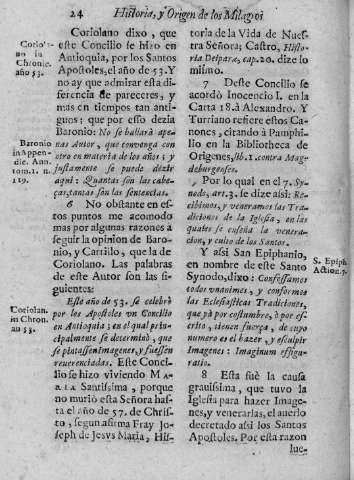 24 Historia, y Origen de los Milagros
Coriola-
no in
Chronic.
año 53.
Coriolano dixo, que
este Concilio se hizo en
Antioquia, por los Santos
Apostoles, el año de 53. Y
no ay que admirar esta di-
ferencia de pareceres, y
mas en tiempos tan anti-
guos; que por esso dezia
Baronio: No se hallarà ape-
nas Autor, que convenga con
otro en materia de los años; y
justamente se puede dezir
aqui: Quantas son las cabe-
ças, tantas son las sentencias.
Baronio
in Appen-
die. Ann.
tom. 1. n.
119.
6 No obstante en es-
tos puntos me acomodo
mas por algunas razones à
seguir la opinion de Baro-
nio, y Carrillo, que la de
Coriolano. Las palabras
de este Autor son las si-
guientes:
Este año de 53. se celebrò
por los Apostoles vn Concilio
en Antioquia; en el qual prin-
cipalmente se determinò, que
se pintassen imagenes, y fuessen
reverenciadas. Este Conci-
lio se hizo viviendo MA-
RIA Santissima, porque
no muriò esta Señora has-
ta el año de 57. de Chris-
to, segun afirma Fray Jo-
seph de Jesvs Maria, His-
Coriolan.
in Chron.
an 53.
toria de la Vida de Nues-
tra Señora; Castro, Histo-
ria Deiparæ, cap. 20. dize lo
mismo.
7 Deste Concilio se
acordò Inocencio I. en la
Carta 18. à Alexandro. Y
Turriano refiere estos Ca-
nones, citando à Pamphi-
lio en la Bibliotheca de
Origenes, lib. 1. contra Mag-
deburgenses.
Por lo qual en el 7. Sy-
nodo, art. 3. se dize assi: Re-
cibimos, y veneramos las Tra-
diciones de la Iglesia, en las
quales se enseña la venera-
cion, y culto de los Santos.
Y assi San Epiphanio,
en nombre de este Santo
Synodo, dixo: Confessamos
todos vnanimes, y conformes
las Eclesiasticas Tradiciones,
que yà por costumbre, ò por es-
crito, tienen fuerça, de cuyo
numero es el hazer, y esculpir
Imagenes: Imaginum effigu-
ratio.
S. Epiph
Action. 7.
8 Esta fuè la causa
gravissima, que tuvo la
Iglesia para hazer Image-
nes, y venerarlas, el averlo
decretado assi los Santos
Apostoles. Por esta razon
lue-